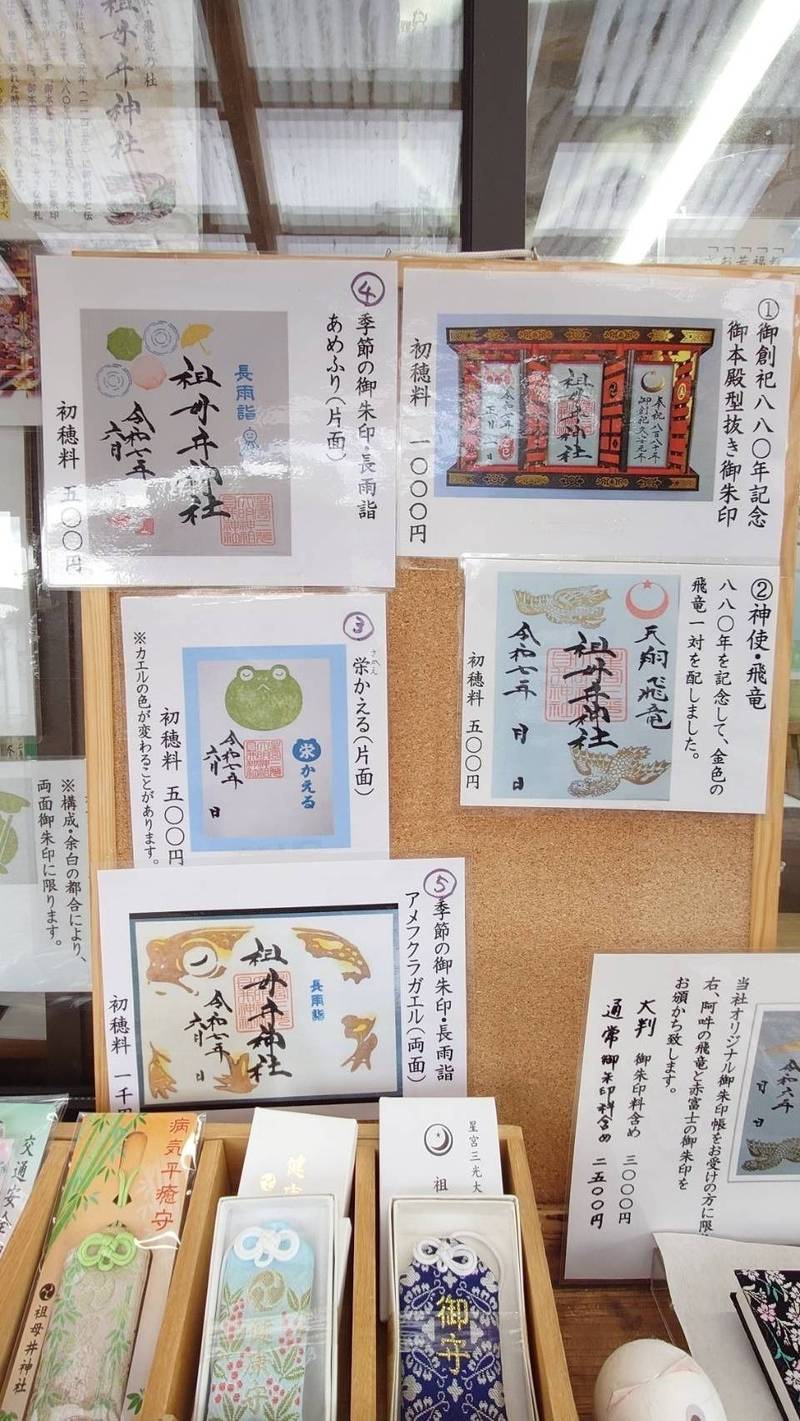 祖母井神社
飛竜の杜
①御創祀八八〇年記念
御本殿型抜き御朱印
奉祝八百八十年
祖母井神社
初穂料 一〇〇〇円
②神使・飛竜
八八〇年を記念して、金色の
飛竜一対を配しました。
天翔飛竜
祖母井神社
令和七年 月 日
初穂料 五〇〇円
④
季節の御朱印・長雨詣
あめふり(片面)
長雨詣
祖母井神社
令和七年
六月
初穂料 五〇〇円
③
さかえ
栄かえる(片面)
栄かえる
令和七年
六月 日
初穂料 五〇〇円
※カエルの色が変わることがあります。
⑤
季節の御朱印・長雨詣
アメフクラガエル(両面)
長雨詣
祖母井神社
令和七年
六月 日
初穂料 一千円
※構成・余白の都合により、
両面御朱印に限ります。
当社オリジナル御朱印帳をお受けの方に限
右、阿吽の飛竜と赤富士の御朱印を
お頒かち致します。
大判 御朱印料含め 三〇〇〇円
通常 御朱印料含め 二五〇〇円
令和六年
月 日
交通安全
病気平癒守
祖母井神社
健康
健康守
星宮三光大
祖
御守